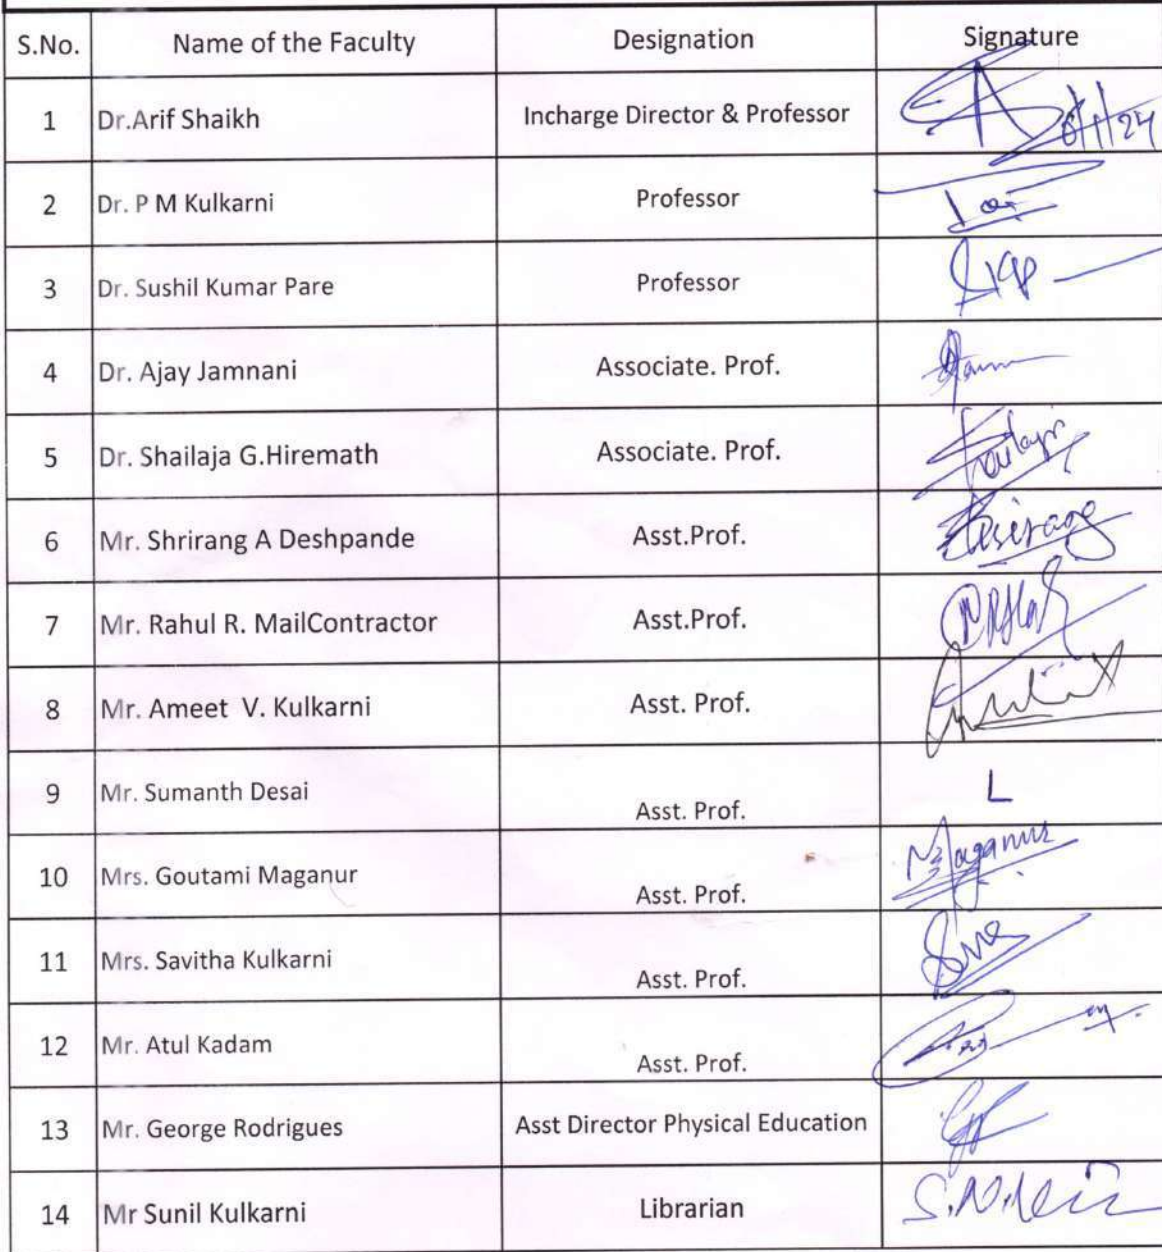 S.No. Name of the Faculty Designation Signature
1 Dr.Arif Shaikh Incharge Director & Professor
2 Dr. P M Kulkarni Professor
3 Dr. Sushil Kumar Pare Professor
4 Dr. Ajay Jamnani Associate. Prof.
5 Dr. Shailaja G.Hiremath Associate. Prof.
6 Mr. Shrirang A Deshpande Asst.Prof.
7 Mr. Rahul R. MailContractor Asst.Prof.
8 Mr. Ameet V. Kulkarni Asst. Prof.
9 Mr. Sumanth Desai Asst. Prof. L
10 Mrs. Goutami Maganur Asst. Prof.
11 Mrs. Savitha Kulkarni Asst. Prof.
12 Mr. Atul Kadam Asst. Prof.
13 Mr. George Rodrigues Asst Director Physical Education
14 Mr Sunil Kulkarni Librarian